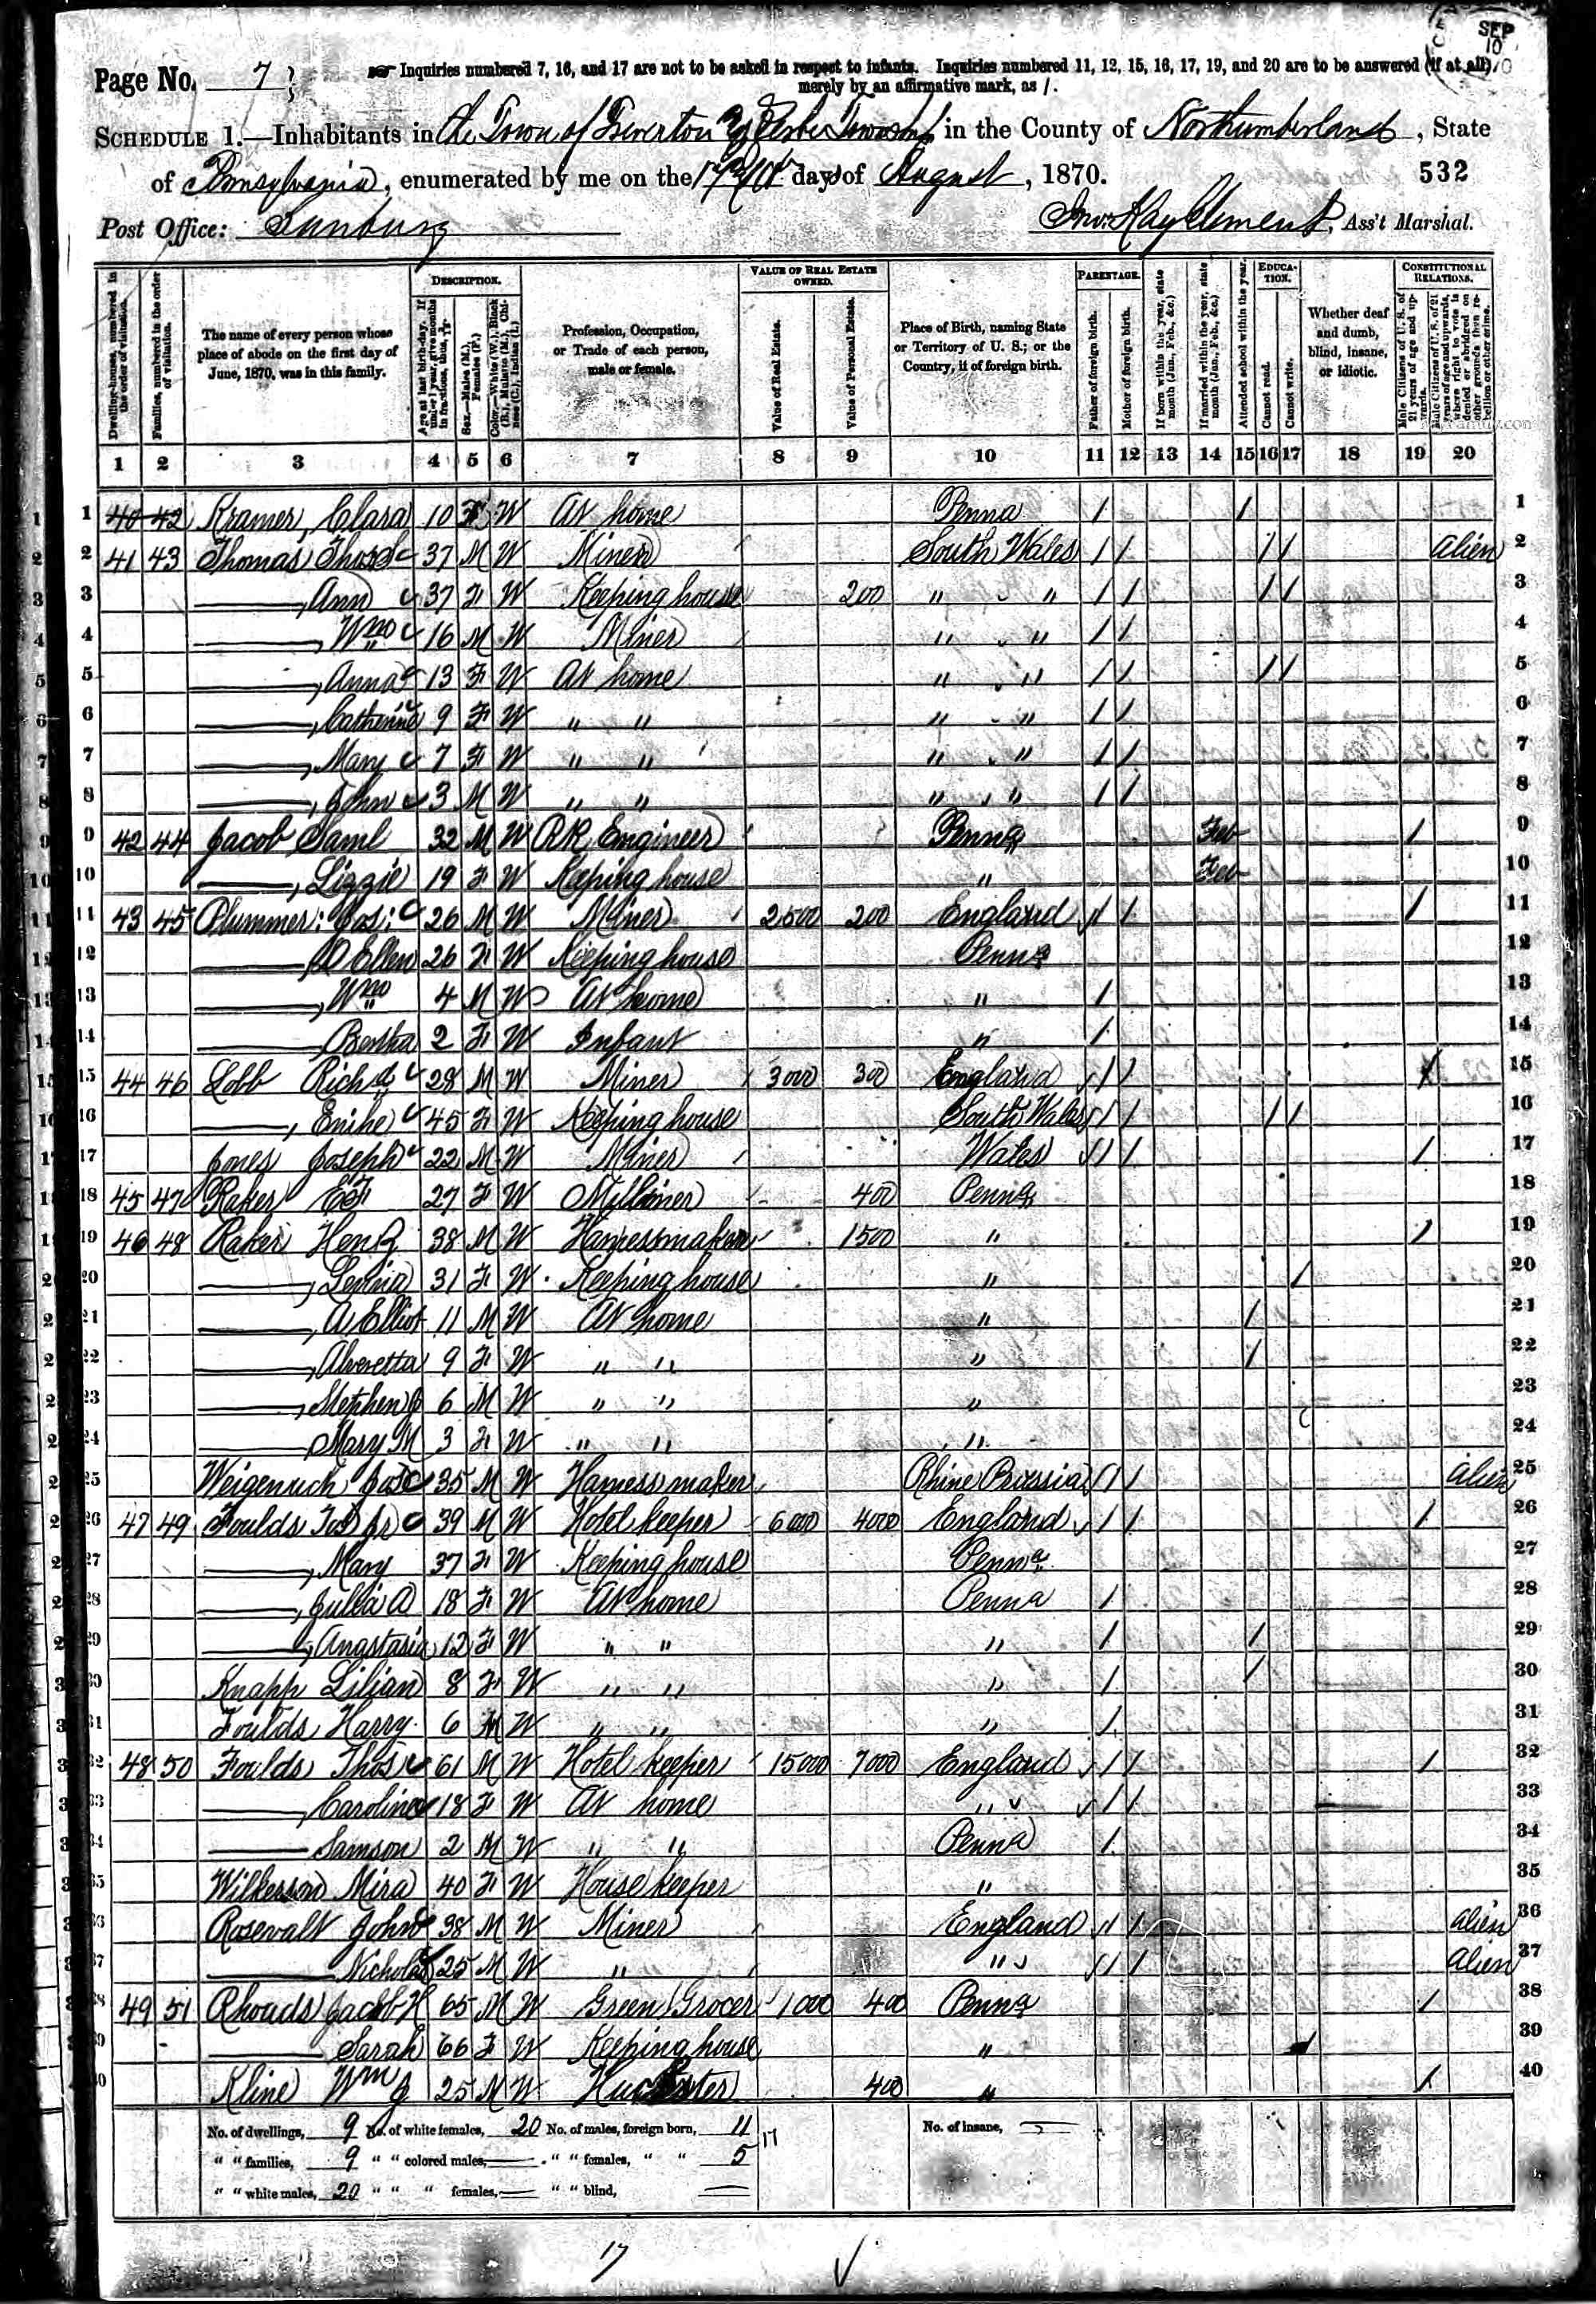 SEP 10
Page No. 7 Inquiries numbered 7, 16, and 17 are not to be asked in respect to infants. Inquiries numbered 11, 12, 15, 16, 17, 19, and 20 are to be answered (if at all)
merely by an affirmative mark, as /.
SCHEDULE 1.—Inhabitants in the Town of Township, in the County of Northumberland, State
of Pennsylvania, enumerated by me on the day of August, 1870. 532
Post Office: Sunbury Jno. Hay Clement, Ass't Marshal.
Dwelling-houses, numbered in the order of visitation.
Families, numbered in the order of visitation.
The name of every person whose place of abode on the first day of June, 1870, was in this family.
DESCRIPTION.
Age at last birth-day. If under 1 year, give months in fractions, thus, 3/12.
Sex.—Males (M.), Females (F.)
Color.—White (W.), Black (B.), Mulatto (M.), Chinese (C.), Indian (I.)
Profession, Occupation, or Trade of each person, male or female.
VALUE OF REAL ESTATE OWNED.
Value of Real Estate.
Value of Personal Estate.
Place of Birth, naming State or Territory of U. S.; or the Country, if of foreign birth.
PARENTAGE.
Father of foreign birth.
Mother of foreign birth.
If born within the year, state month (Jan., Feb., &c.)
If married within the year, state month (Jan., Feb., &c.)
Attended school within the year.
EDUCATION.
Cannot read.
Cannot write.
Whether deaf and dumb, blind, insane, or idiotic.
CONSTITUTIONAL RELATIONS.
Male Citizens of U. S. of 21 years of age and upwards.
Male Citizens of U. S. of 21 years of age and upwards, where right to vote is denied or abridged on other grounds than rebellion or other crime.
1 2 3 4 5 6 7 8 9 10 11 12 13 14 15 16 17 18 19 20
1 40 42 Kramer, Clara 10 F W At home Penna / / 1
2 41 43 Thomas 37 M W Miner South Wales / / / / Alien 2
3 —, Ann 37 F W Keeping house 200 " " / / / / 3
4 —, Wm 16 M W Miner " " / / 4
5 —, Anna 13 F W At home " " / / / / 5
6 —, Catherine 9 F W " " " " / / 6
7 —, Mary 7 F W " " " " / / 7
8 —, John 3 M W " " " " / / 8
9 42 44 Jacob Saml 32 M W RR Engineer Penna Feb / 9
10 —, Lizzie 19 F W Keeping house " Feb 10
11 43 45 Plummer: Jos: 26 M W Miner 2500 200 England / / / 11
12 —, Ellen 26 F W Keeping house Penna 12
13 —, Wm 4 M W At home " / 13
14 —, Bertha 2 F W Infant " / 14
15 44 46 Lobb Richd 28 M W Miner 3000 300 England / / / 15
16 —, 45 F W Keeping house South Wales / / / / 16
17 Jones Joseph 22 M W Miner Wales / / / 17
18 45 47 Raker 27 F W Milliner 400 Penna 18
19 46 48 Raker Hen R 38 M W Harnessmaker 1500 " / 19
20 —, 31 F W Keeping house " / 20
21 —, A Elliot 11 M W At home " / 21
22 —, Alveretta 9 F W " " " / 22
23 —, Stephen 6 M W " " " 23
24 —, Mary M 3 F W " " " 24
25 35 M W Harness maker Rhine Prussia / / Alien 25
26 47 49 Foulds Jr 39 M W Hotel keeper 6000 4000 England / / / 26
27 —, Mary 37 F W Keeping house Penna 27
28 —, Julia A 18 F W At home Penna / 28
29 —, Anastasia 12 F W " " " / / 29
30 Knapp Lilian 8 F W " " " / / 30
31 Foulds Harry 6 M W " " " / 31
32 48 50 Foulds Thos 61 M W Hotel keeper 15000 7000 England / / / 32
33 —, Caroline 18 F W At home " / / 33
34 — Samson 2 M W " " Penna / 34
35 Wilkerson Mira 40 F W House keeper " 35
36 Rosevalt John 38 M W Miner England / / Alien 36
37 — Nicholas 25 M W " " / / Alien 37
38 49 51 Rhoads Jacob H 65 M W Green Grocer 1000 400 Penna / 38
39 — Sarah 66 F W Keeping house " / 39
40 Kline Wm J 25 M W Huckster 400 " / 40
No. of dwellings, 9 No. of white females, 20 No. of males, foreign born, 11 17 No. of insane, —
" " families, 9 " " colored males, — " " females, " " 5
" " white males, 20 " " " females, — " " blind, —
17